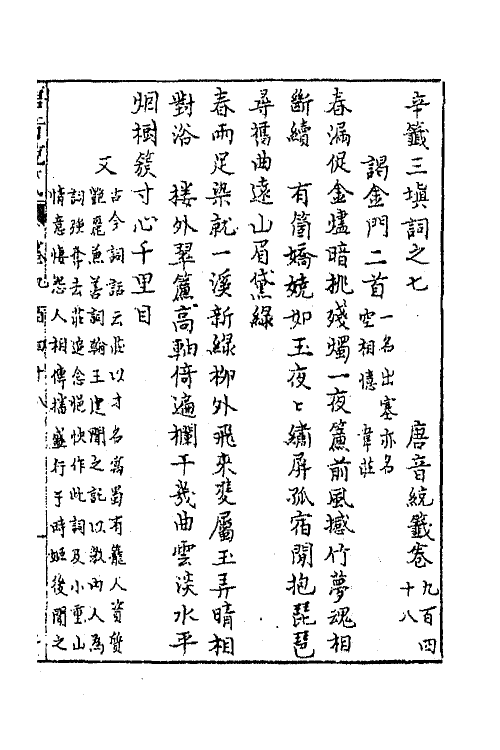 辛籤三填詞之七　唐音統籤卷九百四十八
謁金門二首一名出塞亦名空相憶　韋莊
春漏促金燼暗挑殘燭一夜簾前風撼竹夢魂相
斷續　有箇嬌嬈如玉夜ヒ繡屏孤宿閒抱琵琶
尋舊曲遠山眉黛綠
春雨足染就一溪新綠柳外飛來雙屬玉弄晴相
對浴　樓外翠簾高軸倚遍欄干幾曲雲淡水平
烟樹簇寸心千里目
又　古今詞話云莊以才名寓蜀有寵人資質
艷麗兼善詞翰王建聞之託以教內人為
詞強奪去莊追念悒怏作此詞及小重山
情意悽怨人相傳播盛行于時姬後聞之